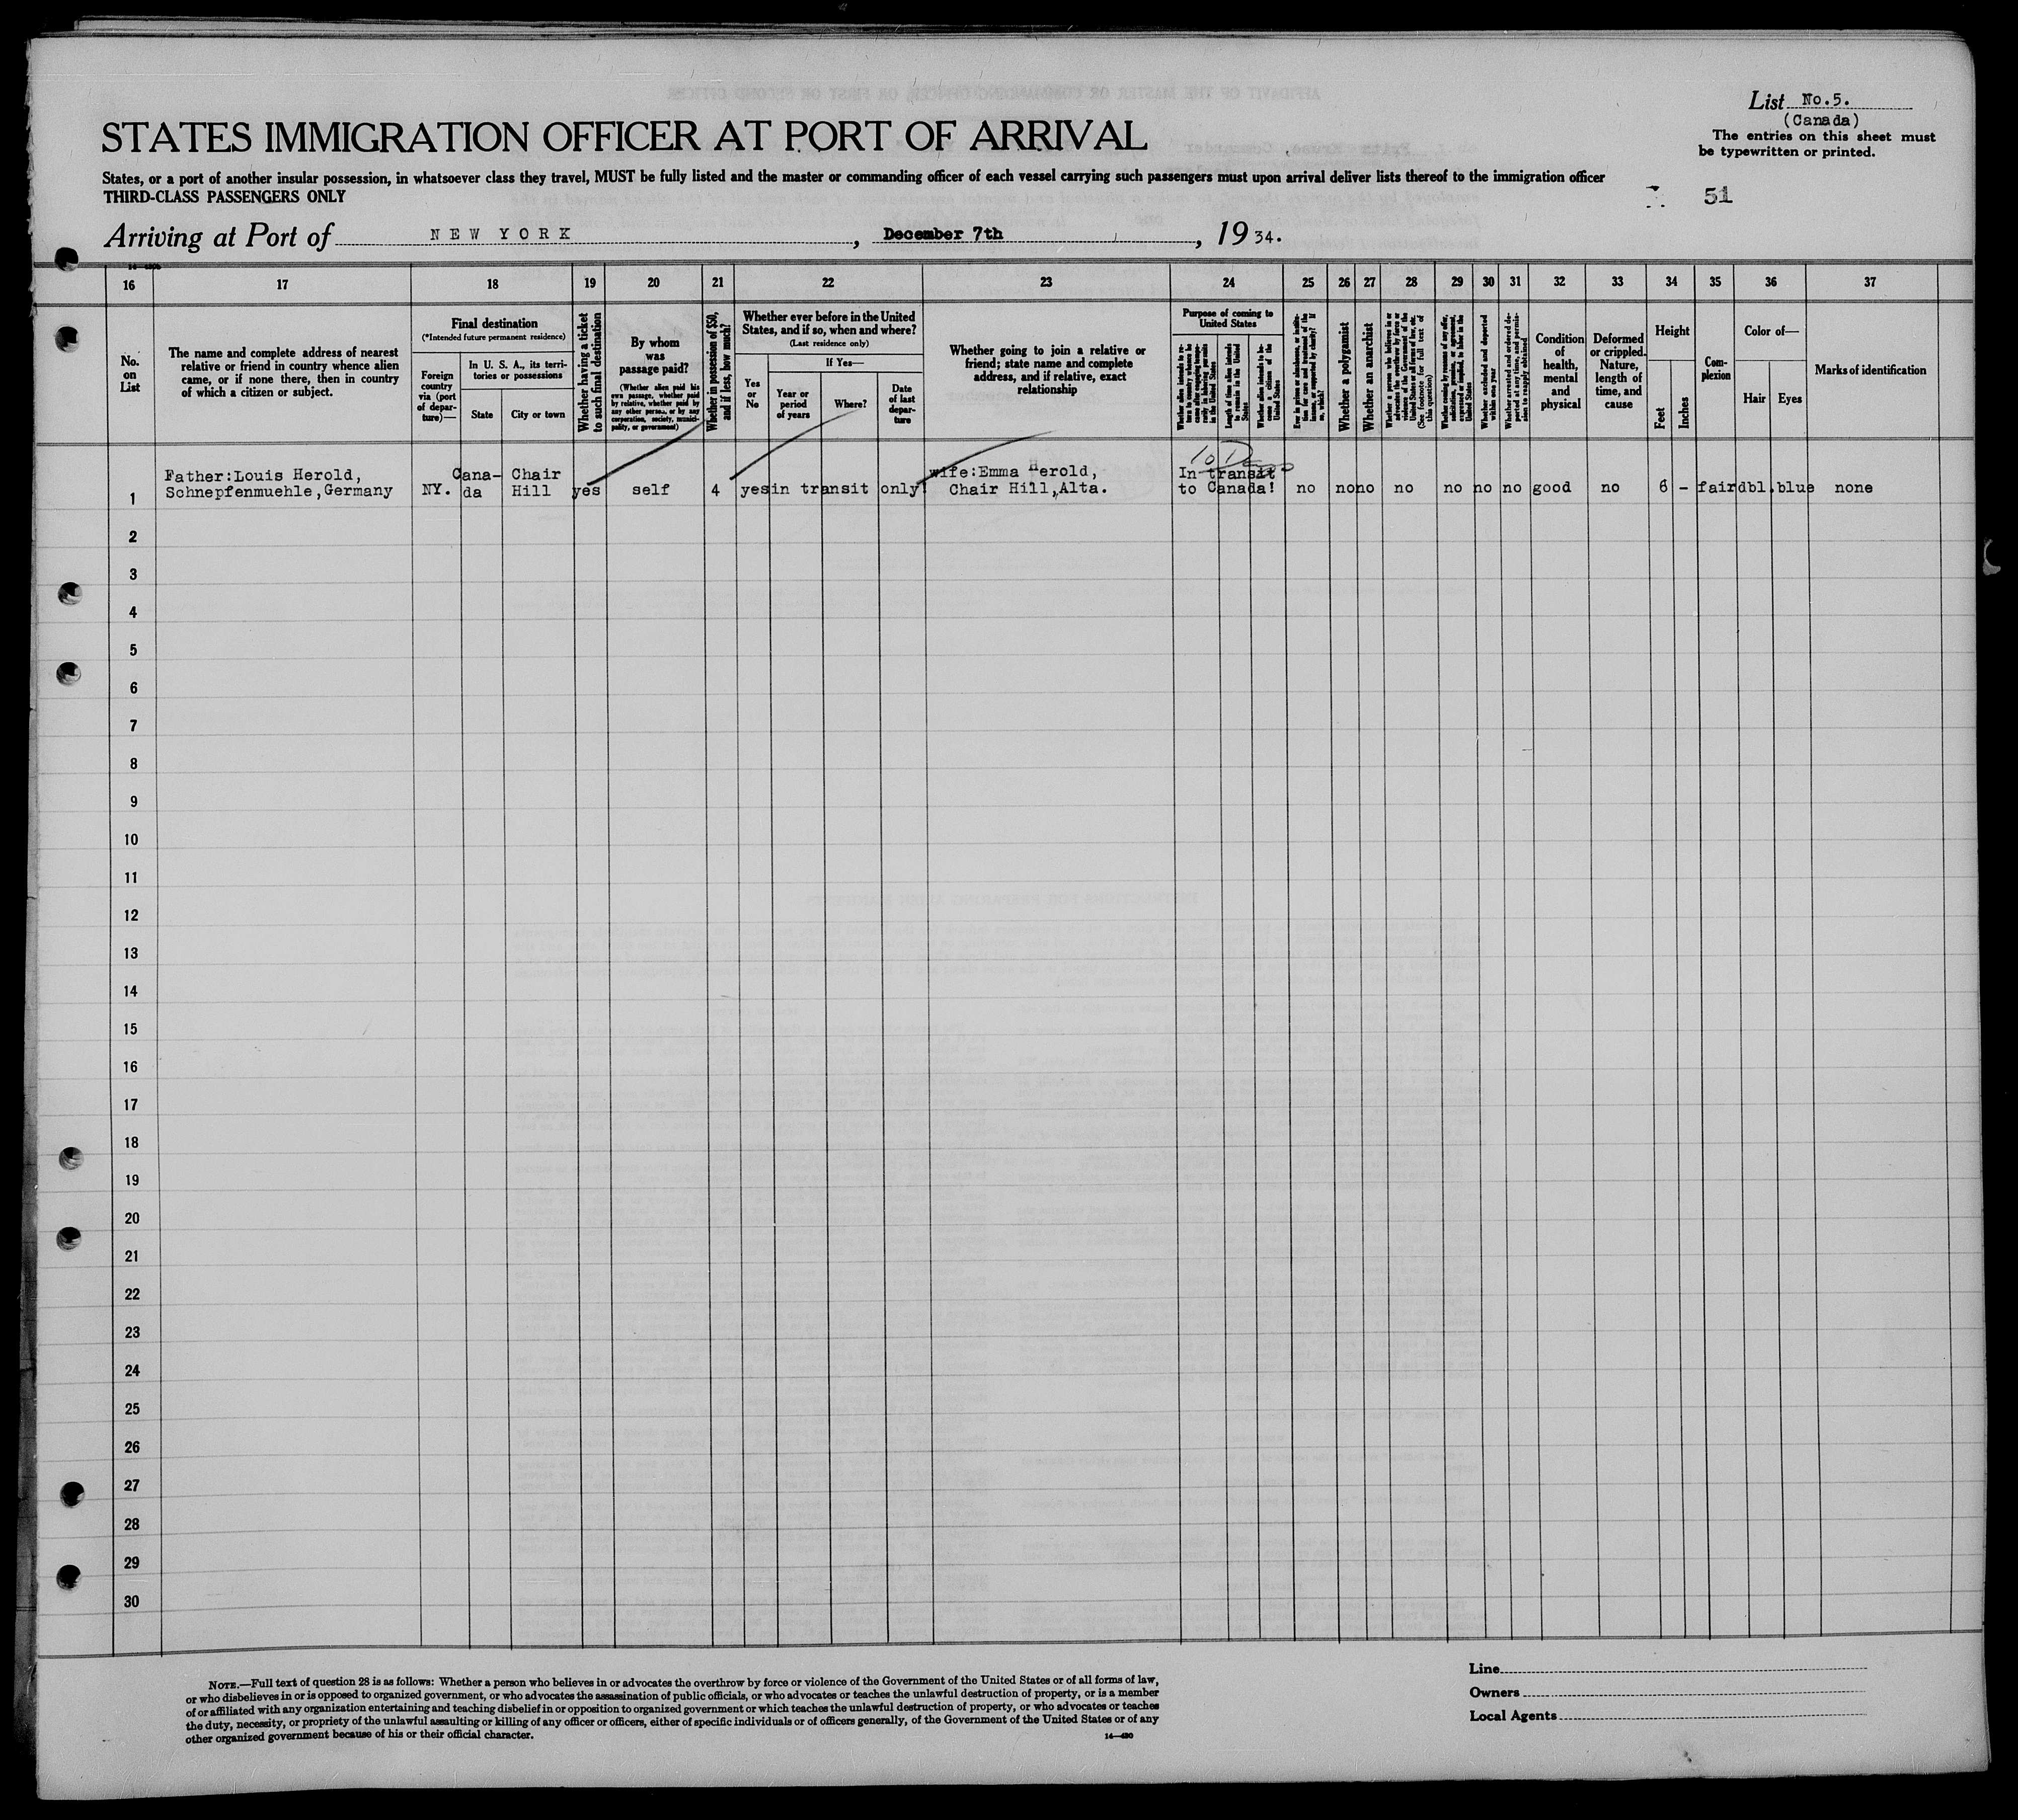 List No.5.
(Canada)
The entries on this sheet must
be typewritten or printed.
STATES IMMIGRATION OFFICER AT PORT OF ARRIVAL
States, or a port of another insular possession, in whatsoever class they travel, MUST be fully listed and the master or commanding officer of each vessel carrying such passengers must upon arrival deliver lists thereof to the immigration officer
THIRD-CLASS PASSENGERS ONLY
51
Arriving at Port of NEW YORK, December 7th, 19 34.
16 17 18 19 20 21 22 23 24 25 26 27 28 29 30 31 32 33 34 35 36 37
No.
on
List
The name and complete address of nearest
relative or friend in country whence alien
came, or if none there, then in country
of which a citizen or subject.
Final destination
(*Intended future permanent residence)
Foreign
country
via (port
of depar-
ture)—
In U. S. A., its terri-
tories or possessions
State
City or town
Whether having a ticket
to such final destination
By whom
was
passage paid?
(Whether alien paid his
own passage, whether paid
by relative, whether paid by
any other person, or by any
corporation, society, munici-
pality, or government)
Whether in possession of $50,
and if less, how much?
Whether ever before in the United
States, and if so, when and where?
(Last residence only)
Yes
or
No
If Yes—
Year or
period
of years
Where?
Date
of last
depar-
ture
Whether going to join a relative or
friend; state name and complete
address, and if relative, exact
relationship
Purpose of coming to
United States
Length of time alien intends
to remain in the United
States
Whether alien intends to be-
come a citizen of the
United States
Whether a polygamist
Whether an anarchist
Condition
of
health,
mental
and
physical
Deformed
or crippled.
Nature,
length of
time, and
cause
Height
Feet
Inches
Com-
plexion
Color of—
Hair
Eyes
Marks of identification
Father:Louis Herold, Cana- Chair wife:Emma Herold, In transit
1 Schnepfenmuehle,Germany NY. da Hill yes self 4 yes in transit only! Chair Hill,Alta. to Canada! no no no no no no no good no 6 - fair dbl. blue none
10 Da
2
3
4
5
6
7
8
9
10
11
12
13
14
15
16
17
18
19
20
21
22
23
24
25
26
27
28
29
30
NOTE.—Full text of question 28 is as follows: Whether a person who believes in or advocates the overthrow by force or violence of the Government of the United States or of all forms of law,
or who disbelieves in or is opposed to organized government, or who advocates the assassination of public officials, or who advocates or teaches the unlawful destruction of property, or is a member
of or affiliated with any organization entertaining and teaching disbelief in or opposition to organized government or which teaches the unlawful destruction of property, or who advocates or teaches
the duty, necessity, or propriety of the unlawful assaulting or killing of any officer or officers, either of specific individuals or of officers generally, of the Government of the United States or of any
other organized government because of his or their official character.
14—480
Line
Owners
Local Agents